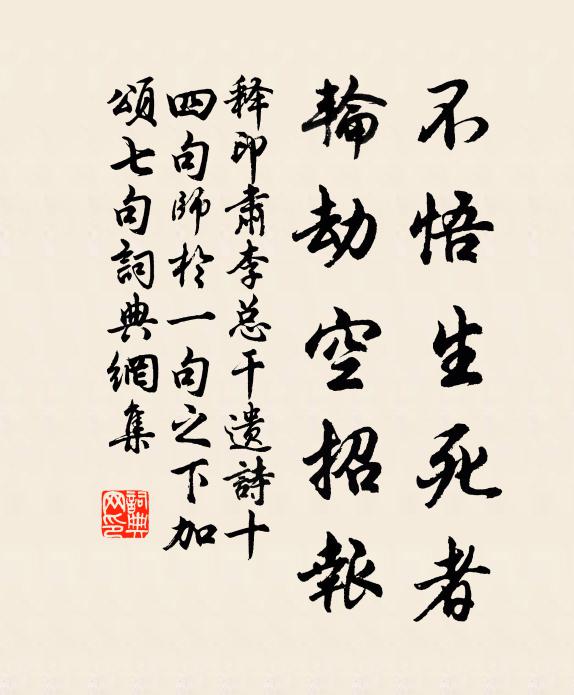 不悟生死者
輪劫空招報
释印肃李总干遗詩十
四句師於一句之下加
頌七句詞典網集
詞典网印